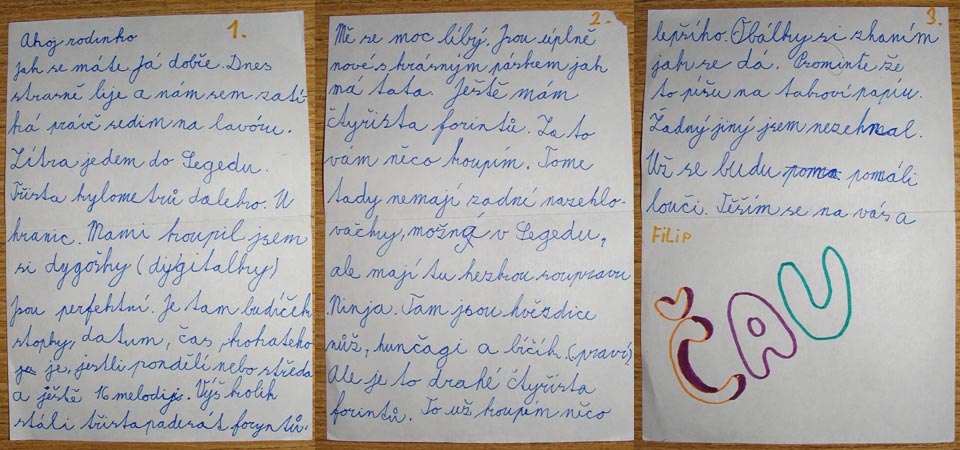 1.
Ahoj rodinko
jak se máte. Já dobře. Dnes
strasně lije a nám sem zatí-
ká právě sedim na lavóru.
Zítra jedem do Segedu.
Třista kylometrů dalekro. U
hranic. Mami koupil jsem
si dygošky (dýgitalky)
Jsou perfektní. Je tam budíček
stopky, datum, čas, kohateko
je je, jestli pondělí nebo středa
a jěště 16 melodijs. Výš kolik
stáli třistapadesát foryntů.
2.
Mě se moc líbý. Jsou úplně
nové s krásným páskem jak
má tata. Ještě mám
čtyřista forintů. Za to
vám něco koupím. Tome
tady nemají zadní nazehlo-
vačky, možná v Segedu,
ale mají tu hezkou soupravu
Ninja. Tam jsou hvězdice
nůž, hunčagi a bičík. (praví)
Ale je to drahé čtyřista
forintů. To už koupím něco
3.
lepšího. Obálky si zkaním
jak se dá. Prominte že
to píšu na takoví papíu.
Žadný jiný jsem nezehnal.
Už se budu poma pomáli
loučí. Těším se na vás a
FiLiP
ČAU